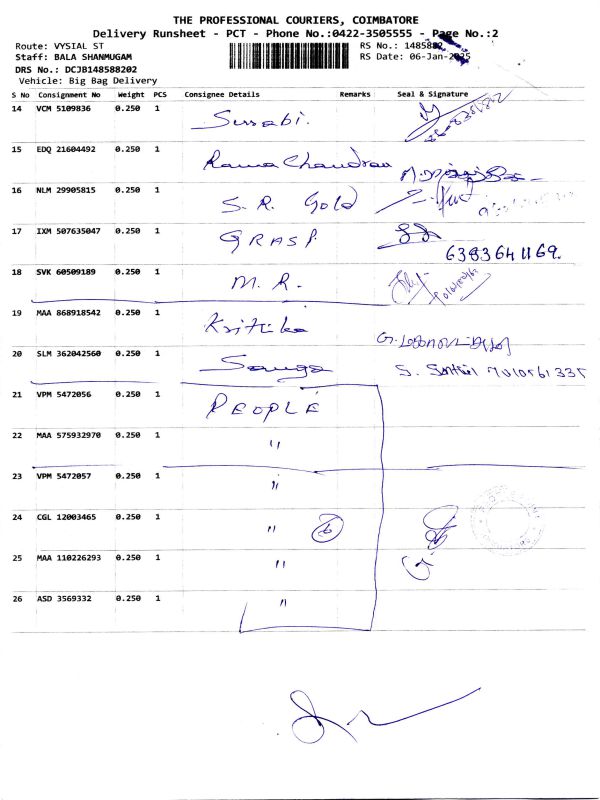 THE PROFESSIONAL COURIERS, COIMBATORE
Delivery Runsheet - PCT - Phone No.:0422-3505555 - Page No.:2
Route: VYSIAL ST
RS No.: 1485882
Staff: BALA SHANMUGAM
RS Date: 06-Jan-2025
DRS No.: DCJB148588202
Vehicle: Big Bag Delivery
S No Consignment No Weight PCS Consignee Details Remarks Seal & Signature
14 VCM 5109836 0.250 1
15 EDQ 21604492 0.250 1 Rama Chandran
16 NLM 29905815 0.250 1 S. R. Gold
17 IXM 507635047 0.250 1 GRASP
6383641169.
18 SVK 60509189 0.250 1 M. R.
19 MAA 868918542 0.250 1 Kritika
20 SLM 362042560 0.250 1 S. Senthil 7010561335
21 VPM 5472056 0.250 1 PEOPLE
22 MAA 575932970 0.250 1 "
23 VPM 5472057 0.250 1 "
24 CGL 12003465 0.250 1 " 6
25 MAA 110226293 0.250 1 "
26 ASD 3569332 0.250 1 "